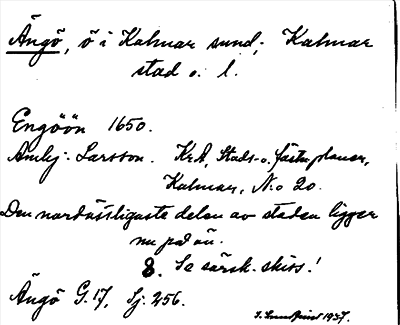 Ängö, ö i Kalmar sund; Kalmar
stad o. l.
Engöön 1650.
Larsson. KrA, Stads- o. fästn.planer,
Kalmar, No 20.
Den nordöstligaste delen av staden ligger
nu på ön.
8. Se särsk. skiss!
Ängö G. 17, Sj. 256.
1937.